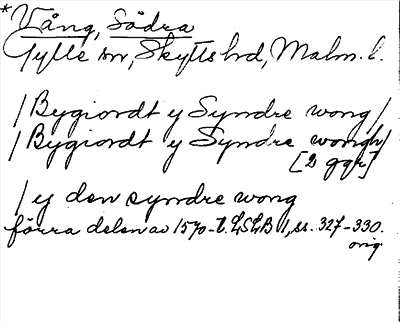 *Vång, Södra
Gylle sn, Skytts hd, Malm. l.
/Bygiordt y Syndre wong/
/Bygiordt y Syndre wongh/
[2 ggr]
/y den syndre wong
förra delen av 1570-t. LSLB 1, ss. 327-330.
orig.